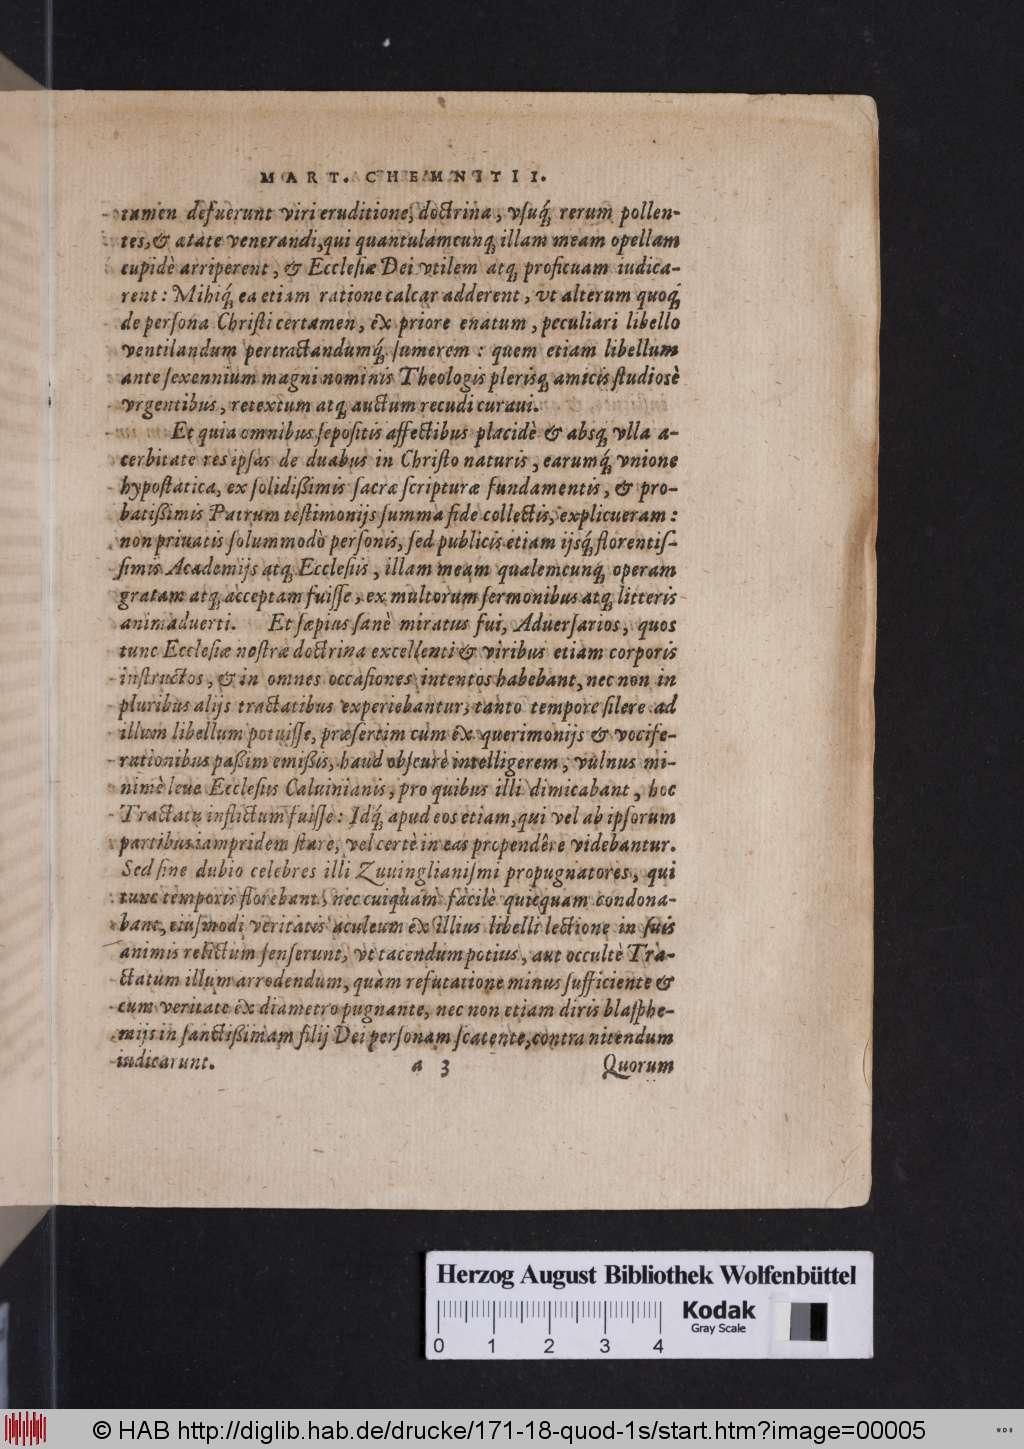 MART. CHEMNITII.
tamen defuerunt viri eruditione, doctrina, vſuq́; rerum pollen-
tes, & ætate venerandi, qui quantulamcunq; illam meam opellam
cupidè arriperent, & Eccleſiæ Dei vtilem atq; proficuam iudica-
rent: Mihiq́; ea etiam ratione calcar adderent, vt alterum quoq́;
de perſona Chriſti certamen, ex priore enatum, peculiari libello
ventilandum pertractandumq́; ſumerem: quem etiam libellum
ante ſexennium magni nominis Theologis plerisq; amicis ſtudiosè
vrgentibus, retextum atq; auctum recudi curaui.
Et quia omnibus ſepoſitis affectibus placidè & absq; vlla a-
cerbitate res ipſas de duabus in Chriſto naturis, earumq́; vnione
hypoſtatica, ex ſolidißimis ſacræ ſcripturæ fundamentis, & pro-
batißimis Patrum teſtimonijs ſumma fide collectis, explicueram:
non priuatis ſolummodò perſonis, ſed publicis etiam ijsq́; florentiſ-
ſimis Academijs atq; Eccleſiis, illam meam qualemcunq́; operam
gratam atq; acceptam fuiſſe, ex multorum ſermonibus atq; litteris
animaduerti. Et ſæpius ſanè miratus fui, Aduerſarios, quos
tunc Eccleſiæ noſtræ doctrina excellenti & viribus etiam corporis
inſtructos, & in omnes occaſiones intentos habebant, nec non in
pluribus alijs tractatibus experiebantur, tanto tempore ſilere ad
illum libellum potuiſſe, præſertim cùm ex querimonijs & vocife-
rationibus paßim emißis, haud obſcurè intelligerem, vulnus mi-
nimè leue Eccleſiis Caluinianis, pro quibus illi dimicabant, hoc
Tractatu inflictum fuiſſe: Idq́; apud eos etiam, qui vel ab ipſorum
partibus iampridem ſtare, vel certè in eas propendêre videbantur.
Sed ſine dubio celebres illi Zuuinglianiſmi propugnatores, qui
tunc temporis florebant, nec cuiquam facilè quicquam condona-
bant, eiuſmodi veritatis aculeum ex illius libelli lectione in ſuis
animis relictum ſenſerunt, vt tacendum potius, aut occultè Tra-
ctatum illum arrodendum, quàm refutatione minus ſufficiente &
cum veritate ex diametro pugnante, nec non etiam diris blaſphe-
mijs in ſanctißimam filij Dei perſonam ſcatente, contra nitendum
iudicarunt.
a 3
Quorum
Herzog August Bibliothek Wolfenbüttel
Kodak
Gray Scale
0 1 2 3 4
© HAB http://diglib.hab.de/drucke/171-18-quod-1s/start.htm?image=00005